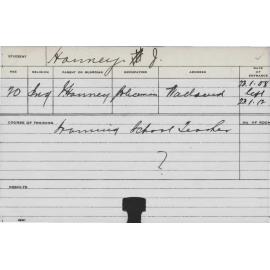 STUDENT Hanney J.
AGE RELIGION PARENT OR GUARDIAN OCCUPATION ADDRESS DATE OF ENTRANCE
20 Hanney Policeman 23.1.08
Left
23.1.12
COURSE OF TRAINING Training School Teacher NO. OF ROOM
?
RESULTS